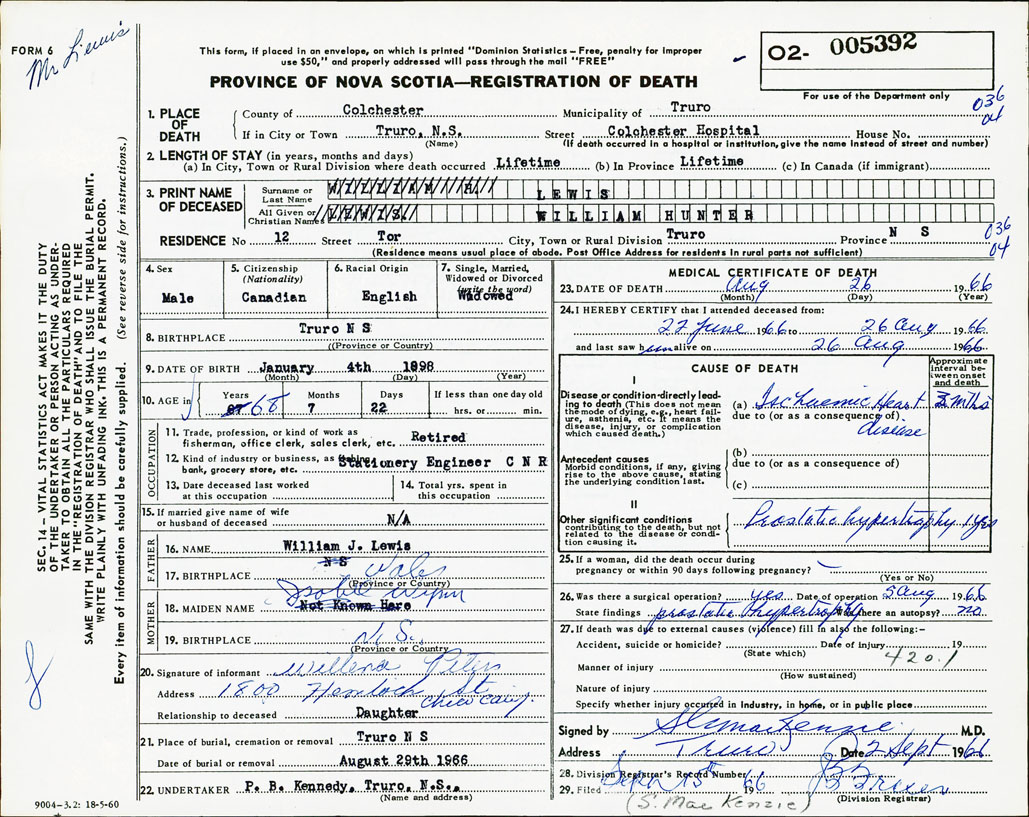 FORM 6
Mr Lewis
This form, if placed in an envelope, on which is printed "Dominion Statistics – Free, penalty for improper
use $50," and properly addressed will pass through the mail "FREE"
PROVINCE OF NOVA SCOTIA—REGISTRATION OF DEATH
02- 005392
For use of the Department only
036
04
1. PLACE OF DEATH
County of Colchester Municipality of Truro
If in City or Town Truro, N.S. Street Colchester Hospital House No.
(Name) (If death occurred in a hospital or institution, give the name instead of street and number)
2. LENGTH OF STAY (in years, months and days)
(a) In City, Town or Rural Division where death occurred Lifetime (b) In Province Lifetime (c) In Canada (if immigrant)
3. PRINT NAME OF DECEASED
Surname or Last Name WILLIAM H LEWIS
All Given or Christian Names LEWIS WILLIAM HUNTER
RESIDENCE No 12 Street Tor City, Town or Rural Division Truro Province N S
036
04
(Residence means usual place of abode. Post Office Address for residents in rural parts not sufficient)
4. Sex
Male
5. Citizenship (Nationality)
Canadian
6. Racial Origin
English
7. Single, Married, Widowed or Divorced (write the word)
Widowed
8. BIRTHPLACE Truro N S
((Province or Country)
9. DATE OF BIRTH January 4th 1898
(Month) (Day) (Year)
10. AGE in
Years 68
Months 7
Days 22
If less than one day old
hrs. or min.
OCCUPATION
11. Trade, profession, or kind of work as
fisherman, office clerk, sales clerk, etc. Retired
12. Kind of industry or business, as fishing,
bank, grocery store, etc. Stationery Engineer C N R
13. Date deceased last worked
at this occupation
14. Total yrs. spent in
this occupation
15. If married give name of wife
or husband of deceased N/A
FATHER
16. NAME William J. Lewis
N S
17. BIRTHPLACE Wales
(Province or Country)
MOTHER
Isobel
18. MAIDEN NAME Not Known Here
19. BIRTHPLACE N.S.
(Province or Country
20. Signature of informant Willena
Address 1800 Hemlock St
Relationship to deceased Daughter
21. Place of burial, cremation or removal Truro N S
Date of burial or removal August 29th 1966
22. UNDERTAKER P. B. Kennedy, Truro, N.S.,
(Name and address)
MEDICAL CERTIFICATE OF DEATH
23. DATE OF DEATH Aug 26 1966
(Month) (Day) (Year)
24. I HEREBY CERTIFY that I attended deceased from:
27 June 1966 to 26 Aug 1966
and last saw him alive on 26 Aug 1966
CAUSE OF DEATH
Approximate interval between onset and death
I
Disease or condition directly leading to death (This does not mean
the mode of dying, e.g., heart failure, asthenia, etc. It means the
disease, injury, or complication
which caused death.)
(a) Ischaemic Heart disease 2 mths
due to (or as a consequence of)
Antecedent causes
Morbid conditions, if any, giving
rise to the above cause, stating
the underlying condition last.
(b)
due to (or as a consequence of)
(c)
II
Other significant conditions
contributing to the death, but not
related to the disease or condition causing it.
Prostatic hypertrophy 1 yr
25. If a woman, did the death occur during
pregnancy or within 90 days following pregnancy?
(Yes or No)
26. Was there a surgical operation? yes Date of operation 5 Aug 1966
State findings prostatic hypertrophy Was there an autopsy? no
27. If death was due to external causes (violence) fill in also the following:–
Accident, suicide or homicide? Date of injury 19
(State which)
420.1
Manner of injury
(How sustained)
Nature of injury
Specify whether injury occurred in industry, in home, or in public place
Signed by S. MacKenzie M.D.
Address Truro Date 2 Sept 1966
28. Division Registrar's Record Number
29. Filed Sept 15 1966
(Division Registrar)
(S. MacKenzie)
SEC. 14 – VITAL STATISTICS ACT MAKES IT THE DUTY
OF THE UNDERTAKER OR PERSON ACTING AS UNDER-
TAKER TO OBTAIN ALL THE PARTICULARS REQUIRED
IN THE "REGISTRATION OF DEATH" AND TO FILE THE
SAME WITH THE DIVISION REGISTRAR WHO SHALL ISSUE THE BURIAL PERMIT.
WRITE PLAINLY WITH UNFADING INK. THIS IS A PERMANENT RECORD.
Every item of information should be carefully supplied. (See reverse side for instructions.)
9004-3.2: 18-5-60